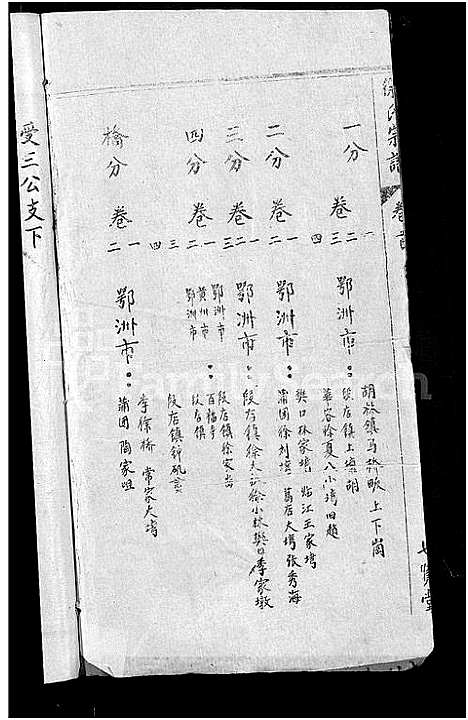 徐氏宗譜 卷首
七賢堂
一分 卷 一 二 三 四 鄂洲市：
胡林鎮馬橋畈上下崗
段店鎮上海胡
華容徐夏八小塆旧趙
二分 卷 一 二 三 四 鄂洲市：
樊口林家塆 临江王家塆
蒲团徐刘塆 葛店大塆張秀海
三分 卷 一 二 三 鄂洲市：
段店鎮徐大 徐小林樊口李家墩
四分 卷 一 二 三 四
鄂洲市：段店鎮徐家
黄州市：百福寺
鄂洲市 段店鎮
段店鎮
橋分 卷 一 二 鄂洲市：
李徐橋 常家大塆
蒲团 陶家咀
受三公支下